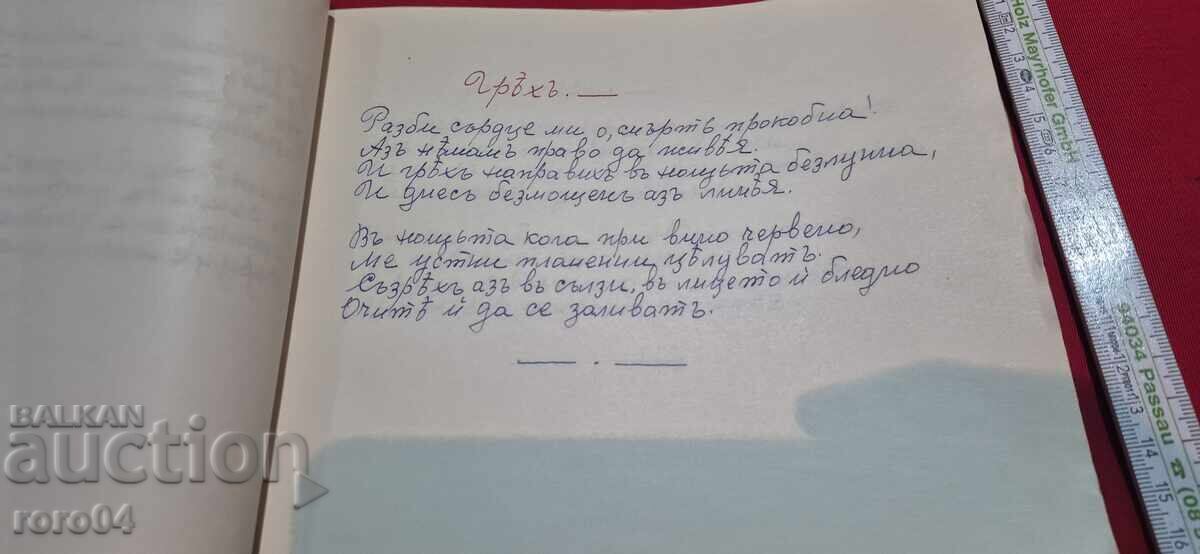 Грѣхъ. —
Разби сърдце ми о, смърть прокобна!
Азъ нѣмамъ право да живѣя.
И грѣхъ направихъ въ нощьта безлунна,
И днесь безмощенъ азъ линѣя.
Въ нощьта кога при вино червено,
Ме устни пламенни цѣлуватъ.
Съзрѣхъ азъ въ сълзи, въ лицето ѝ бледно
Очитѣ ѝ да се заливатъ.
BALKAN
auction
roro04
Holz Mayrhofer GmbH
94034 Passau ☎ (08